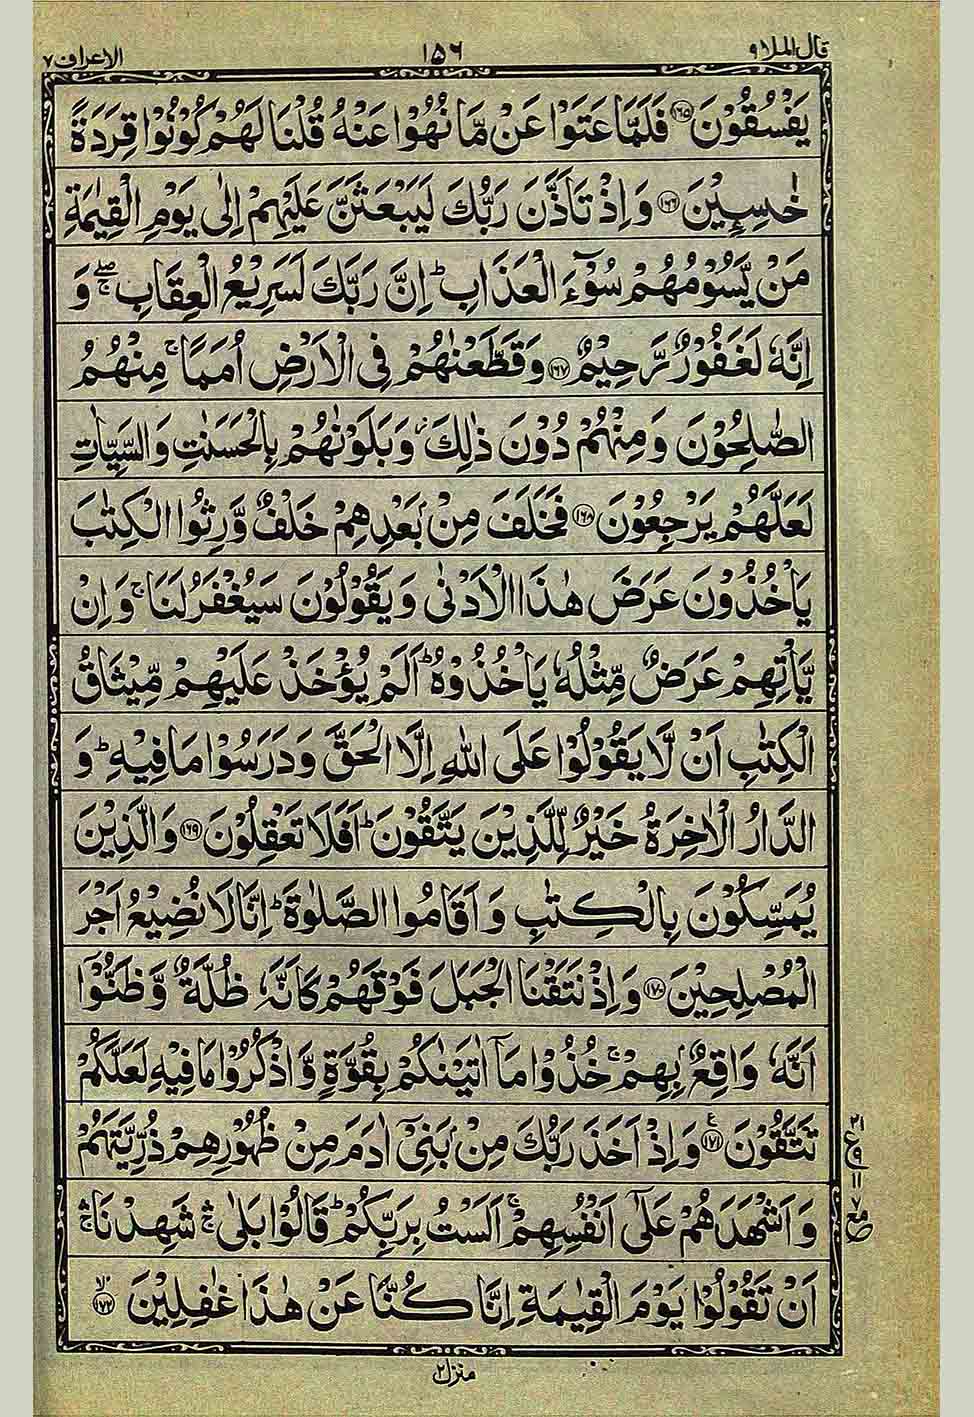 قال الملا ٩ ١٥٦ الاعراف ٧
يَفْسُقُوْنَ ﴿١٦٥﴾ فَلَمَّا عَتَوْا عَنْ مَّا نُهُوْا عَنْهُ قُلْنَا لَهُمْ كُوْنُوْا قِرَدَةً
خٰسِـِٕيْنَ ﴿١٦٦﴾ وَاِذْ تَاَذَّنَ رَبُّكَ لَيَبْعَثَنَّ عَلَيْهِمْ اِلٰى يَوْمِ الْقِيٰمَةِ
مَنْ يَّسُوْمُهُمْ سُوْٓءَ الْعَذَابِ ؕ اِنَّ رَبَّكَ لَسَرِيْعُ الْعِقَابِ ۚۖ وَ
اِنَّهٗ لَغَفُوْرٌ رَّحِيْمٌ ﴿١٦٧﴾ وَقَطَّعْنٰهُمْ فِى الْاَرْضِ اُمَمًا ۚ مِنْهُمُ
الصّٰلِحُوْنَ وَمِنْهُمْ دُوْنَ ذٰلِكَ ؗ وَبَلَوْنٰهُمْ بِالْحَسَنٰتِ وَالسَّيِّاٰتِ
لَعَلَّهُمْ يَرْجِعُوْنَ ﴿١٦٨﴾ فَخَلَفَ مِنْۢ بَعْدِهِمْ خَلْفٌ وَّرِثُوا الْكِتٰبَ
يَاْخُذُوْنَ عَرَضَ هٰذَا الْاَدْنٰى وَيَقُوْلُوْنَ سَيُغْفَرُ لَنَا ۚ وَاِنْ
يَّاْتِهِمْ عَرَضٌ مِّثْلُهٗ يَاْخُذُوْهُ ؕ اَلَمْ يُؤْخَذْ عَلَيْهِمْ مِّيْثَاقُ
الْكِتٰبِ اَنْ لَّا يَقُوْلُوْا عَلَى اللّٰهِ اِلَّا الْحَقَّ وَدَرَسُوْا مَا فِيْهِ ؕ وَ
الدَّارُ الْاٰخِرَةُ خَيْرٌ لِّلَّذِيْنَ يَتَّقُوْنَ ؕ اَفَلَا تَعْقِلُوْنَ ﴿١٦٩﴾ وَالَّذِيْنَ
يُمَسِّكُوْنَ بِالْكِتٰبِ وَاَقَامُوا الصَّلٰوةَ ؕ اِنَّا لَا نُضِيْعُ اَجْرَ
الْمُصْلِحِيْنَ ﴿١٧٠﴾ وَاِذْ نَتَقْنَا الْجَبَلَ فَوْقَهُمْ كَاَنَّهٗ ظُلَّةٌ وَّظَنُّوْٓا
اَنَّهٗ وَاقِعٌۢ بِهِمْ ۚ خُذُوْا مَاۤ اٰتَيْنٰكُمْ بِقُوَّةٍ وَّاذْكُرُوْا مَا فِيْهِ لَعَلَّكُمْ
تَتَّقُوْنَ ﴿١٧١﴾ ع وَاِذْ اَخَذَ رَبُّكَ مِنْۢ بَنِىْٓ اٰدَمَ مِنْ ظُهُوْرِهِمْ ذُرِّيَّتَهُمْ
وَاَشْهَدَهُمْ عَلٰٓى اَنْفُسِهِمْ ۚ اَلَسْتُ بِرَبِّكُمْ ؕ قَالُوْا بَلٰى ۛۚ شَهِدْنَا ۛۚ
اَنْ تَقُوْلُوْا يَوْمَ الْقِيٰمَةِ اِنَّا كُنَّا عَنْ هٰذَا غٰفِلِيْنَ ﴿١٧٢﴾ لا
منزل ٢